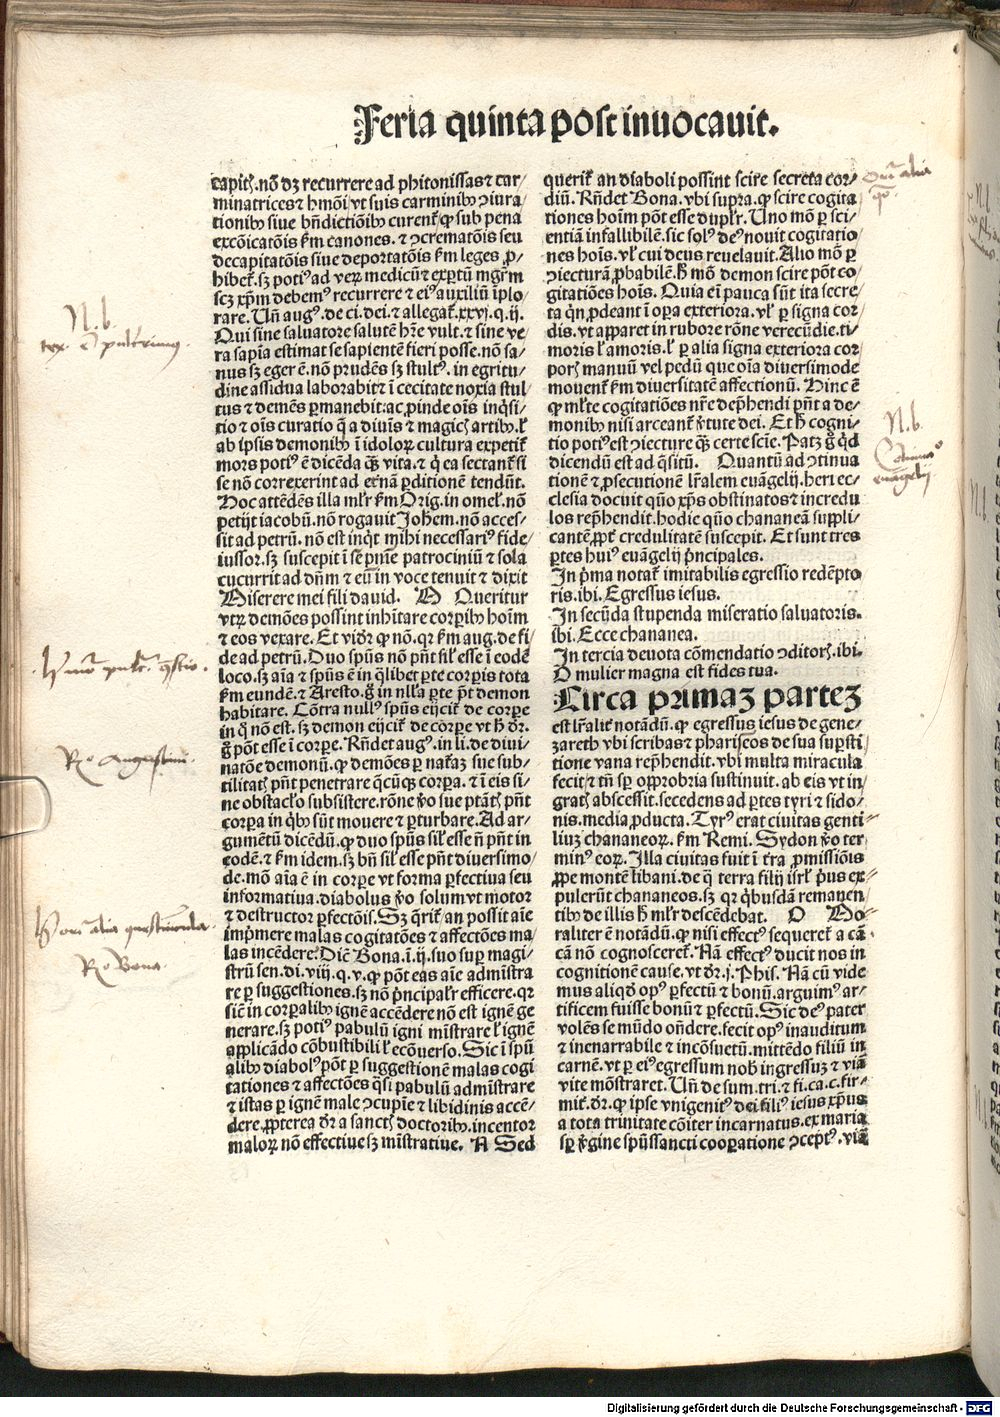 Feria quinta post inuocauit.
capitꝭ.nō dꝫ recurrere ad phitonissas ⁊ car/
minatrices ⁊ hmōi vt suis carminibꝰ ꝯiura/
tionibꝰ siue bn̄dictiōibꝰ curent᷑ ꝙ sub pena
excōicatōis ẜm canones. ⁊ ꝯcrematōis seu
decapitatōis siue deportatōis ẜm leges ꝓ/
hibet᷑. sꝫ potiꝰ ad veꝝ medicū ⁊ exꝑtū mgr̄m
scꝫ xp̄m debemꝰ recurrere ⁊ eiꝰ auxiliū īplo/
rare. Un̄ augꝰ. de ci. dei. ⁊ allegat᷑. xxvj. q. ij.
Qui sine saluatore salutē hr̄e vult. ⁊ sine ve/
ra sapīa estimat se sapientē fieri posse. nō sa/
nus sꝫ eger ē. nō prudēs sꝫ stultꝰ. in egritu/
dine assidua laborabit ⁊ ī cecitate noxia stul
tus ⁊ demēs ꝑmanebit: ac ꝓinde oīs inq̇si/
tio ⁊ oīs curatio q̄ a diuīs ⁊ magicꝭ artibꝰ. ł
ab ipsis demonibꝰ ī idoloꝝ cultura expetit᷑
mors potiꝰ ē dicēda q̄ꝫ vita. ⁊ q̇ ea sectant᷑ si
se nō correxerint ad et̄nā ꝑditionē tendūt.
Hoc attēdēs illa ml̓r ẜm Orig. in omel̓. nō
petijt iacobū. nō rogauit Joh̓em. nō acces/
sit ad petrū. nō est inq̇t mihi necessariꝰ fide/
iussor. sꝫ suscepit ī se pn̄ie patrociniū ⁊ sola
cucurrit ad dn̄m ⁊ eū in voce tenuit ⁊ dixit
Miserere mei fili dauid. M Queritur
vtꝝ demōes possint inh̓itare corꝑibꝰ hoīm
⁊ eos vexare. Et vid̓r ꝙ nō. qꝛ ẜm aug. de fi/
de ad petrū. Duo spūs nō pn̄t sil̓ esse ī eodē
loco. sꝫ aīa ⁊ spūs ē in q̇libet ꝑte corꝑis tota
ẜm eundē. ⁊ Aresto. ḡ in nll̓a ꝑte pōt demon
habitare. Cōtra nullꝰ spūs eijcit᷑ de corꝑe
in q̊ nō est. sꝫ demon eijcit᷑ de corꝑe vt h̓ d̓r.
ḡ pōt esse ī corꝑe. Rn̄det augꝰ. in li. de diui/
natōe demonū. ꝙ demōes ꝑ nat̄aꝫ sue sub/
tilitatꝭ pn̄t penetrare q̄cūqꝫ corꝑa. ⁊ ī eis si/
ne obstacl̓o subsistere. rōne ꝟo sue ptātꝭ pn̄t
corꝑa in q̇bꝰ sūt mouere ⁊ ꝑturbare. Ad ar/
gumētū dicēdū. ꝙ duo spūs sil̓ esse n̄ pn̄t in
eodē. ⁊ ẜm idem. sꝫ bn̄ sil̓ esse pn̄t diuersimo/
de. mō aīa ē in corꝑe vt forma ꝑfectiua seu
informatiua. diabolus ꝟo solum vt motor
⁊ destructor ꝑfectōis. Sꝫ q̄rit᷑ an possit aīe
imp̓mere malas cogitatōes ⁊ affectōes ma/
las incēdere. Dic̄ Bona. ī. ij. suo suꝑ magi/
strū sen. di. viij. q. v. ꝙ pōt eas aīe admīstra
re ꝑ suggestiones. sꝫ nō p̓ncipal̓r efficere. qꝛ
sic̄ in corꝑalibꝰ ignē accēdere nō est ignē ge
nerare. sꝫ potiꝰ pabulū igni mīstrare ł ignē
applicādo cōbustibili ł ecōuerso. Sic ī spū
alibꝰ diabolꝰ pōt ꝑ suggestionē malas cogi
tationes ⁊ affectōes q̄si pabulū admīstrare
⁊ istas ꝑ ignē male ꝯcupīe ⁊ libidinis accē/
dere. ꝓpterea d̓r a sanctꝭ doctoribꝰ. incentor
maloꝝ nō effectiue sꝫ mīstratiue. N Sed
querit᷑ an diaboli possint scire secreta cor/
diū. Rn̄det Bona. vbi supra. ꝙ scire cogita
tiones hoīm pōt esse dupl̓r. Uno mō ꝑ sci/
entiā infallibilē. sic solꝰ deꝰ nouit cogitatio/
nes hoīs. vł cui deus reuelauit. Alio mō ꝑ
ꝯiecturā ꝓbabilē. h̓ mō demon scire pōt co/
gitatiōes hoīs. Quia eī pauca sūt ita secre/
ta qn̄ ꝓdeant ī oꝑa exteriora. vł ꝑ signa cor/
dis. vt apparet in rubore rōne verecūdie. ti/
moris ł amoris. ł ꝑ alia signa exteriora cor
porꝭ manuū vel pedū que oīa diuersimode
mouent᷑ ẜm diuersitatē affectionū. Hinc ē
ꝙ ml̓te cogitatiōes nr̄e dep̄hendi pn̄t a de/
monibꝰ nisi arceant᷑ ꝟtute dei. Et h̓ cogni/
tio potiꝰ est ꝯiecture q̄ꝫ certe scīe. Patꝫ ḡ q̇d
dicendū est ad q̄sitū. Quantū ad ꝯtinua
tionē ⁊ ꝓsecutionē lr̄alem euāgelij. heri ec/
clesia docuit quō xp̄s obstinatos ⁊ incredu
los rep̄hendit. hodie quō chananeā suppli/
cantē ꝓpt᷑ credulitatē suscepit. Et sunt tres
ꝑtes huiꝰ euāgelij p̓ncipales.
In p̓ma notat᷑ imitabilis egressio redēpto
ris. ibi. Egressus iesus.
In secūda stupenda miseratio saluatoris.
ibi. Ecce chananea.
In tercia deuota cōmendatio ꝯditorꝭ. ibi.
O mulier magna est fides tua.
Circa primaꝫ parteꝫ
est lr̄alit᷑ notādū. ꝙ egressus iesus de gene/
zareth vbi scribas ⁊ phariseos de sua suꝑsti/
tione vana rep̄hendit. vbi multa miracula
fecit ⁊ tn̄ sꝑ opprobria sustinuit. ab eis vt in/
gratꝭ abscessit. secedens ad ꝑtes tyri ⁊ sido/
nis. media ꝓducta. Tyrꝰ erat ciuitas genti/
liuꝫ chananeoꝝ. ẜm Remi. Sydon ꝟo ter
minꝰ eoꝝ. Illa ciuitas fuit ī t̄ra ꝓmissiōis
ꝓpe montē libani. de q̄ terra filij isrł p̓us ex/
pulerūt chananeos. sꝫ qꝛ q̇busdā remanen/
tibꝰ de illis h̓ ml̓r descēdebat. O Mo/
raliter ē notādū. ꝙ nisi effectꝰ sequeret᷑ a cā.
cā nō cognosceret᷑. Nā effectꝰ ducit nos in
cognitionē cause. vt d̓r. j. Phis. Nā cū vide
mus aliqd̓ opꝰ ꝑfectū ⁊ bonū. arguimꝰ ar/
tificem fuisse bonū ⁊ ꝑfectū. Sic deꝰ pater
volēs se mūdo on̄dere. fecit opꝰ inauditum
⁊ inenarrabile ⁊ incōsuetū. mittēdo filiū in
carnē. vt ꝑ eiꝰ egressum nobꝭ ingressuꝫ ⁊ viā
vite mōstraret. Un̄ de sum. tri. ⁊ fi. ca. c. fir/
mit᷑. d̓r. ꝙ ipse vnigenitꝰ dei filiꝰ iesus xp̄us
a tota trinitate cōiter incarnatus. ex maria
sꝑ ꝟgine spūssancti cooꝑatione ꝯceptꝰ. viā
N.b.
Ro Augustinus.
Ro Bona.
N.b.
euāgelij
Digitalisierung gefördert durch die Deutsche Forschungsgemeinschaft - DFG